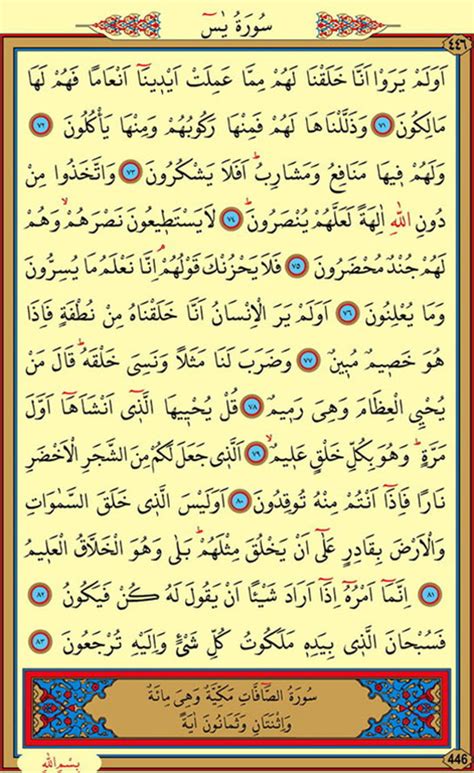 سُورَةُ يٰسٓ
٤٤٦
اَوَلَمْ يَرَوْا اَنَّا خَلَقْنَا لَهُمْ مِمَّا عَمِلَتْ اَيْدٖينَٓا اَنْعَامًا فَهُمْ لَهَا
مَالِكُونَ ﴿٧١﴾ وَذَلَّلْنَاهَا لَهُمْ فَمِنْهَا رَكُوبُهُمْ وَمِنْهَا يَأْكُلُونَ ﴿٧٢﴾
وَلَهُمْ فٖيهَا مَنَافِعُ وَمَشَارِبُۜ اَفَلَا يَشْكُرُونَ ﴿٧٣﴾ وَاتَّخَذُوا مِنْ
دُونِ اللّٰهِ اٰلِهَةً لَعَلَّهُمْ يُنْصَرُونَۜ ﴿٧٤﴾ لَا يَسْتَطٖيعُونَ نَصْرَهُمْۙ وَهُمْ
لَهُمْ جُنْدٌ مُحْضَرُونَ ﴿٧٥﴾ فَلَا يَحْزُنْكَ قَوْلُهُمْۘ اِنَّا نَعْلَمُ مَا يُسِرُّونَ
وَمَا يُعْلِنُونَ ﴿٧٦﴾ اَوَلَمْ يَرَ الْاِنْسَانُ اَنَّا خَلَقْنَاهُ مِنْ نُطْفَةٍ فَاِذَا
هُوَ خَصٖيمٌ مُبٖينٌ ﴿٧٧﴾ وَضَرَبَ لَنَا مَثَلًا وَنَسِيَ خَلْقَهُۜ قَالَ مَنْ
يُحْيِ الْعِظَامَ وَهِيَ رَمٖيمٌ ﴿٧٨﴾ قُلْ يُحْيٖيهَا الَّـذٖٓي اَنْشَاَهَٓا اَوَّلَ
مَرَّةٍۜ وَهُوَ بِكُلِّ خَلْقٍ عَلٖيمٌۙ ﴿٧٩﴾ اَلَّذٖي جَعَلَ لَكُمْ مِنَ الشَّجَرِ الْاَخْضَرِ
نَارًا فَاِذَٓا اَنْتُمْ مِنْهُ تُوقِدُونَ ﴿٨٠﴾ اَوَلَيْسَ الَّذٖي خَلَقَ السَّمٰوَاتِ
وَالْاَرْضَ بِقَادِرٍ عَلٰٓى اَنْ يَخْلُقَ مِثْلَهُمْۜ بَلٰى وَهُوَ الْخَلَّاقُ الْعَلٖيمُ
﴿٨١﴾ اِنَّمَٓا اَمْرُهُٓ اِذَٓا اَرَادَ شَيْـًٔا اَنْ يَقُولَ لَهُ كُنْ فَيَكُونُ ﴿٨٢﴾
فَسُبْحَانَ الَّذٖي بِيَدِهٖ مَلَكُوتُ كُلِّ شَيْءٍ وَاِلَيْهِ تُرْجَعُونَ ﴿٨٣﴾
سُورَةُ الصَّافَّاتِ مَكِّيَّةٌ وَهِيَ مِائَةٌ
وَاِثْنَتَانِ وَثَمَانُونَ اٰيَةً
بِسْمِ اللّٰهِ
446